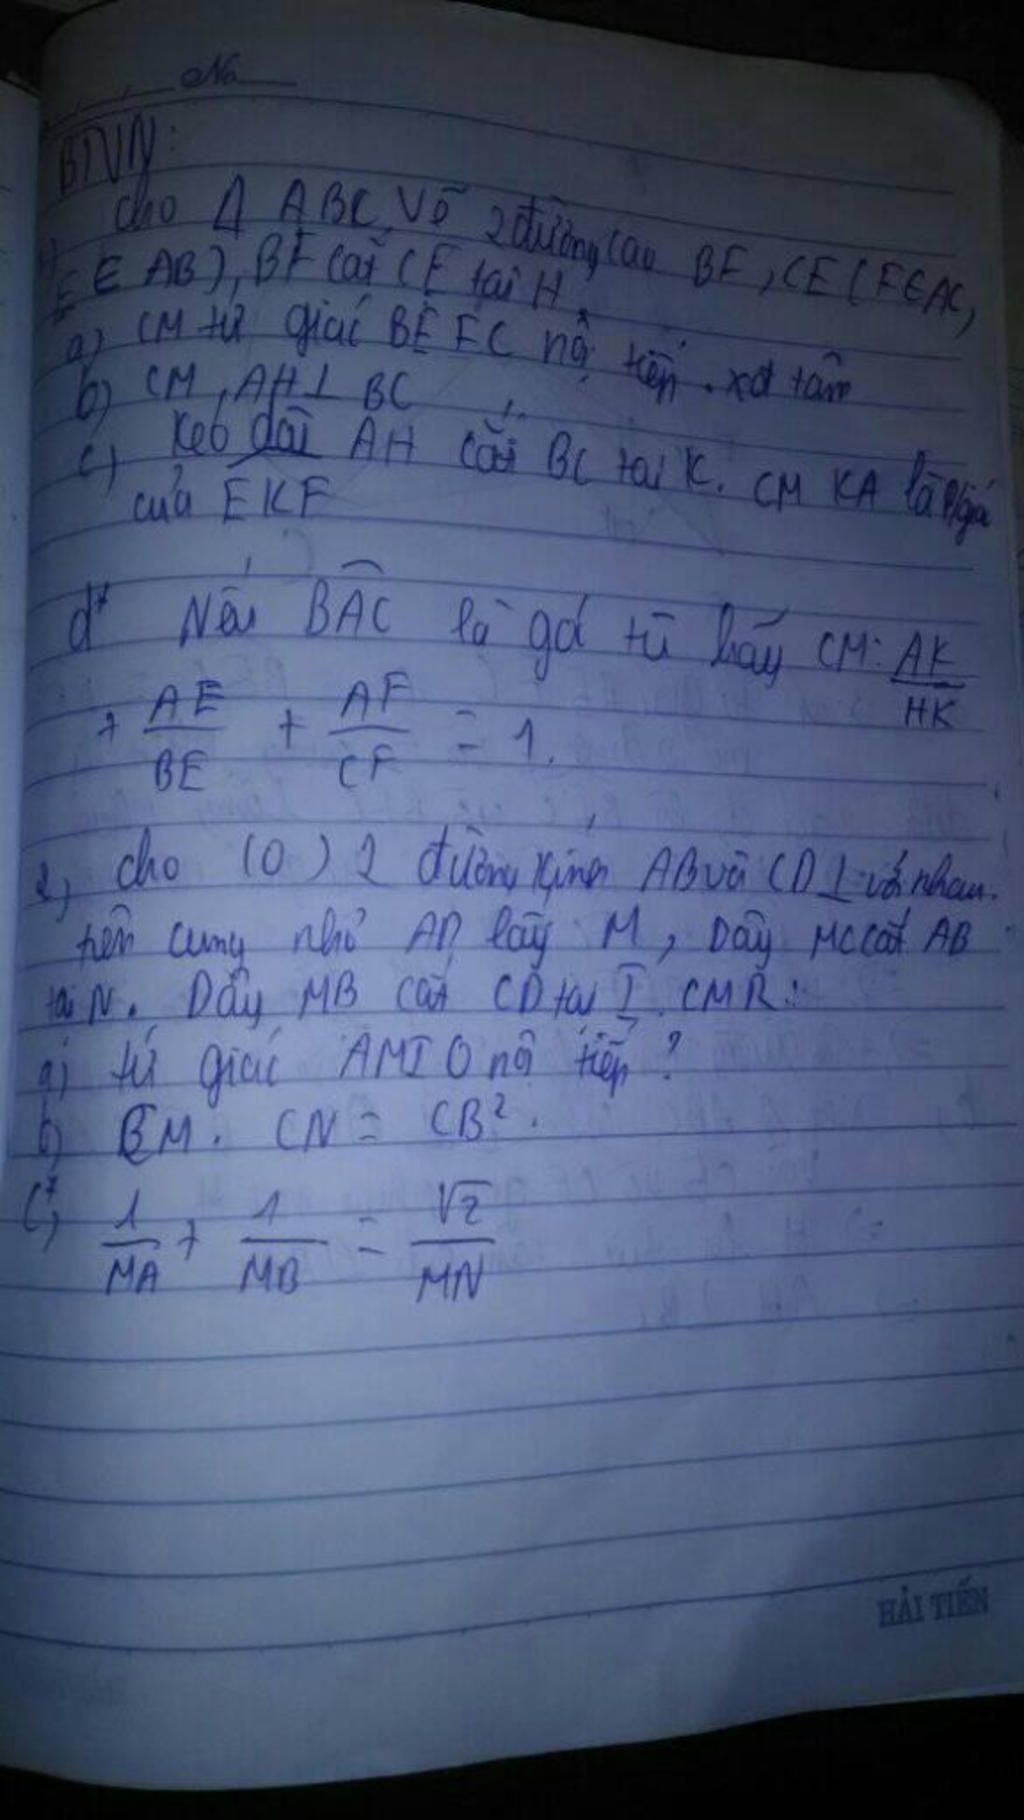 No
BTVN:
1) Cho Δ ABC, Vẽ 2 đường cao BF, CE (F∈AC,
E ∈ AB), BF cắt CE tại H
a) CM tứ giác BEFC nội tiếp. xđ tâm
b) CM, AH⊥ BC
c) Kéo dài AH cắt BC tại K. CM KA là P/giác
của EKF
d* Nếu BAC là góc tù hãy CM: AK/HK
+ AE/BE + AF/CF = 1.
2, Cho (O) 2 đường kính AB và CD ⊥ với nhau.
trên cung nhỏ AD lấy M, Dây MC cắt AB
tại N. Dây MB cắt CD tại I. CMR:
a) tứ giác AMIO nội tiếp?
b) CM. CN = CB².
c*, 1/MA + 1/MB = √2/MN
HẢI TIẾN